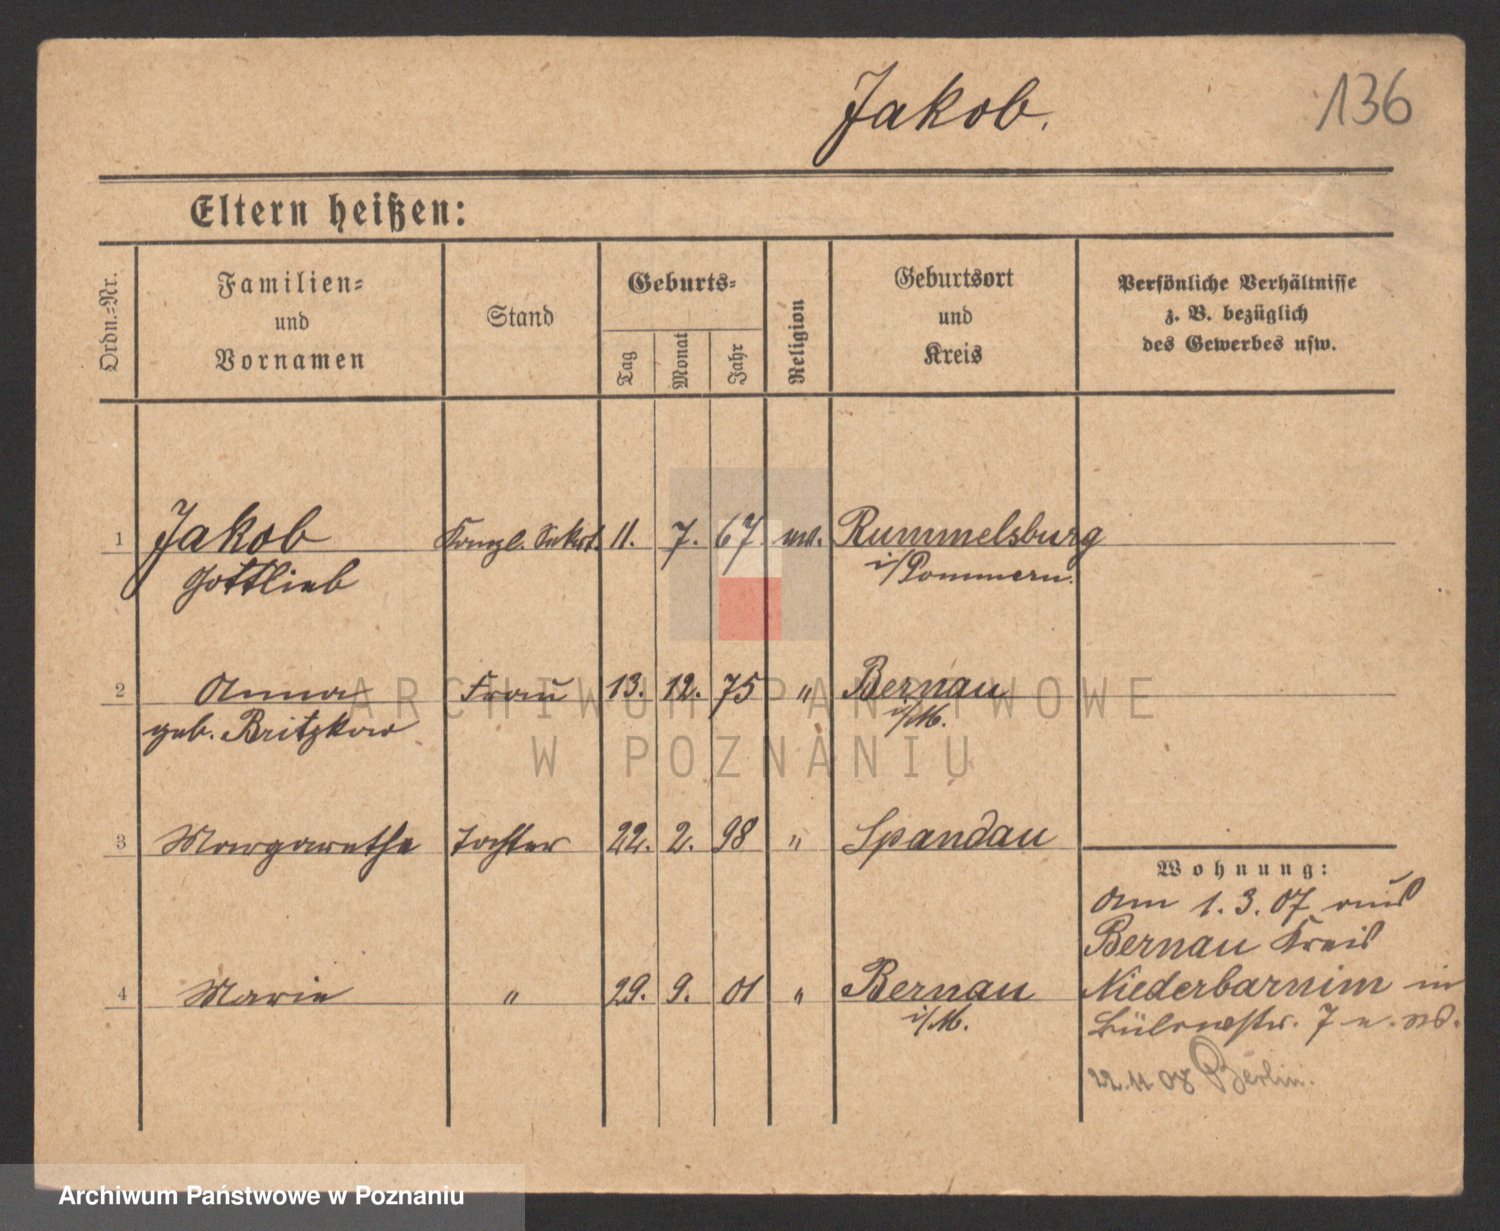 Jakob.
136
Eltern heißen:
Ordn.-Nr.
Familien-
und
Vornamen
Stand
Geburts-
Tag
Monat
Jahr
Religion
Geburtsort
und
Kreis
Persönliche Verhältnisse
z. B. bezüglich
des Gewerbes usw.
1 Jakob Kanzl. Sekret. 11. 7. 67 ev. Rummelsburg
Gottlieb i/Pommern.
2 Anna Frau 13. 12. 75 " Bernau
geb. Britzkow i/M.
3 Margarethe Tochter 22. 2. 98 " Spandau
4 Marie " 29. 9. 01 " Bernau
i/M.
Wohnung:
Am 1. 3. 07 aus
Bernau Kreis
Niederbarnim in
Bülowstr. 7
22.11 08 Berlin.
ARCHIWUM PAŃSTWOWE
W POZNANIU
Archiwum Państwowe w Poznaniu